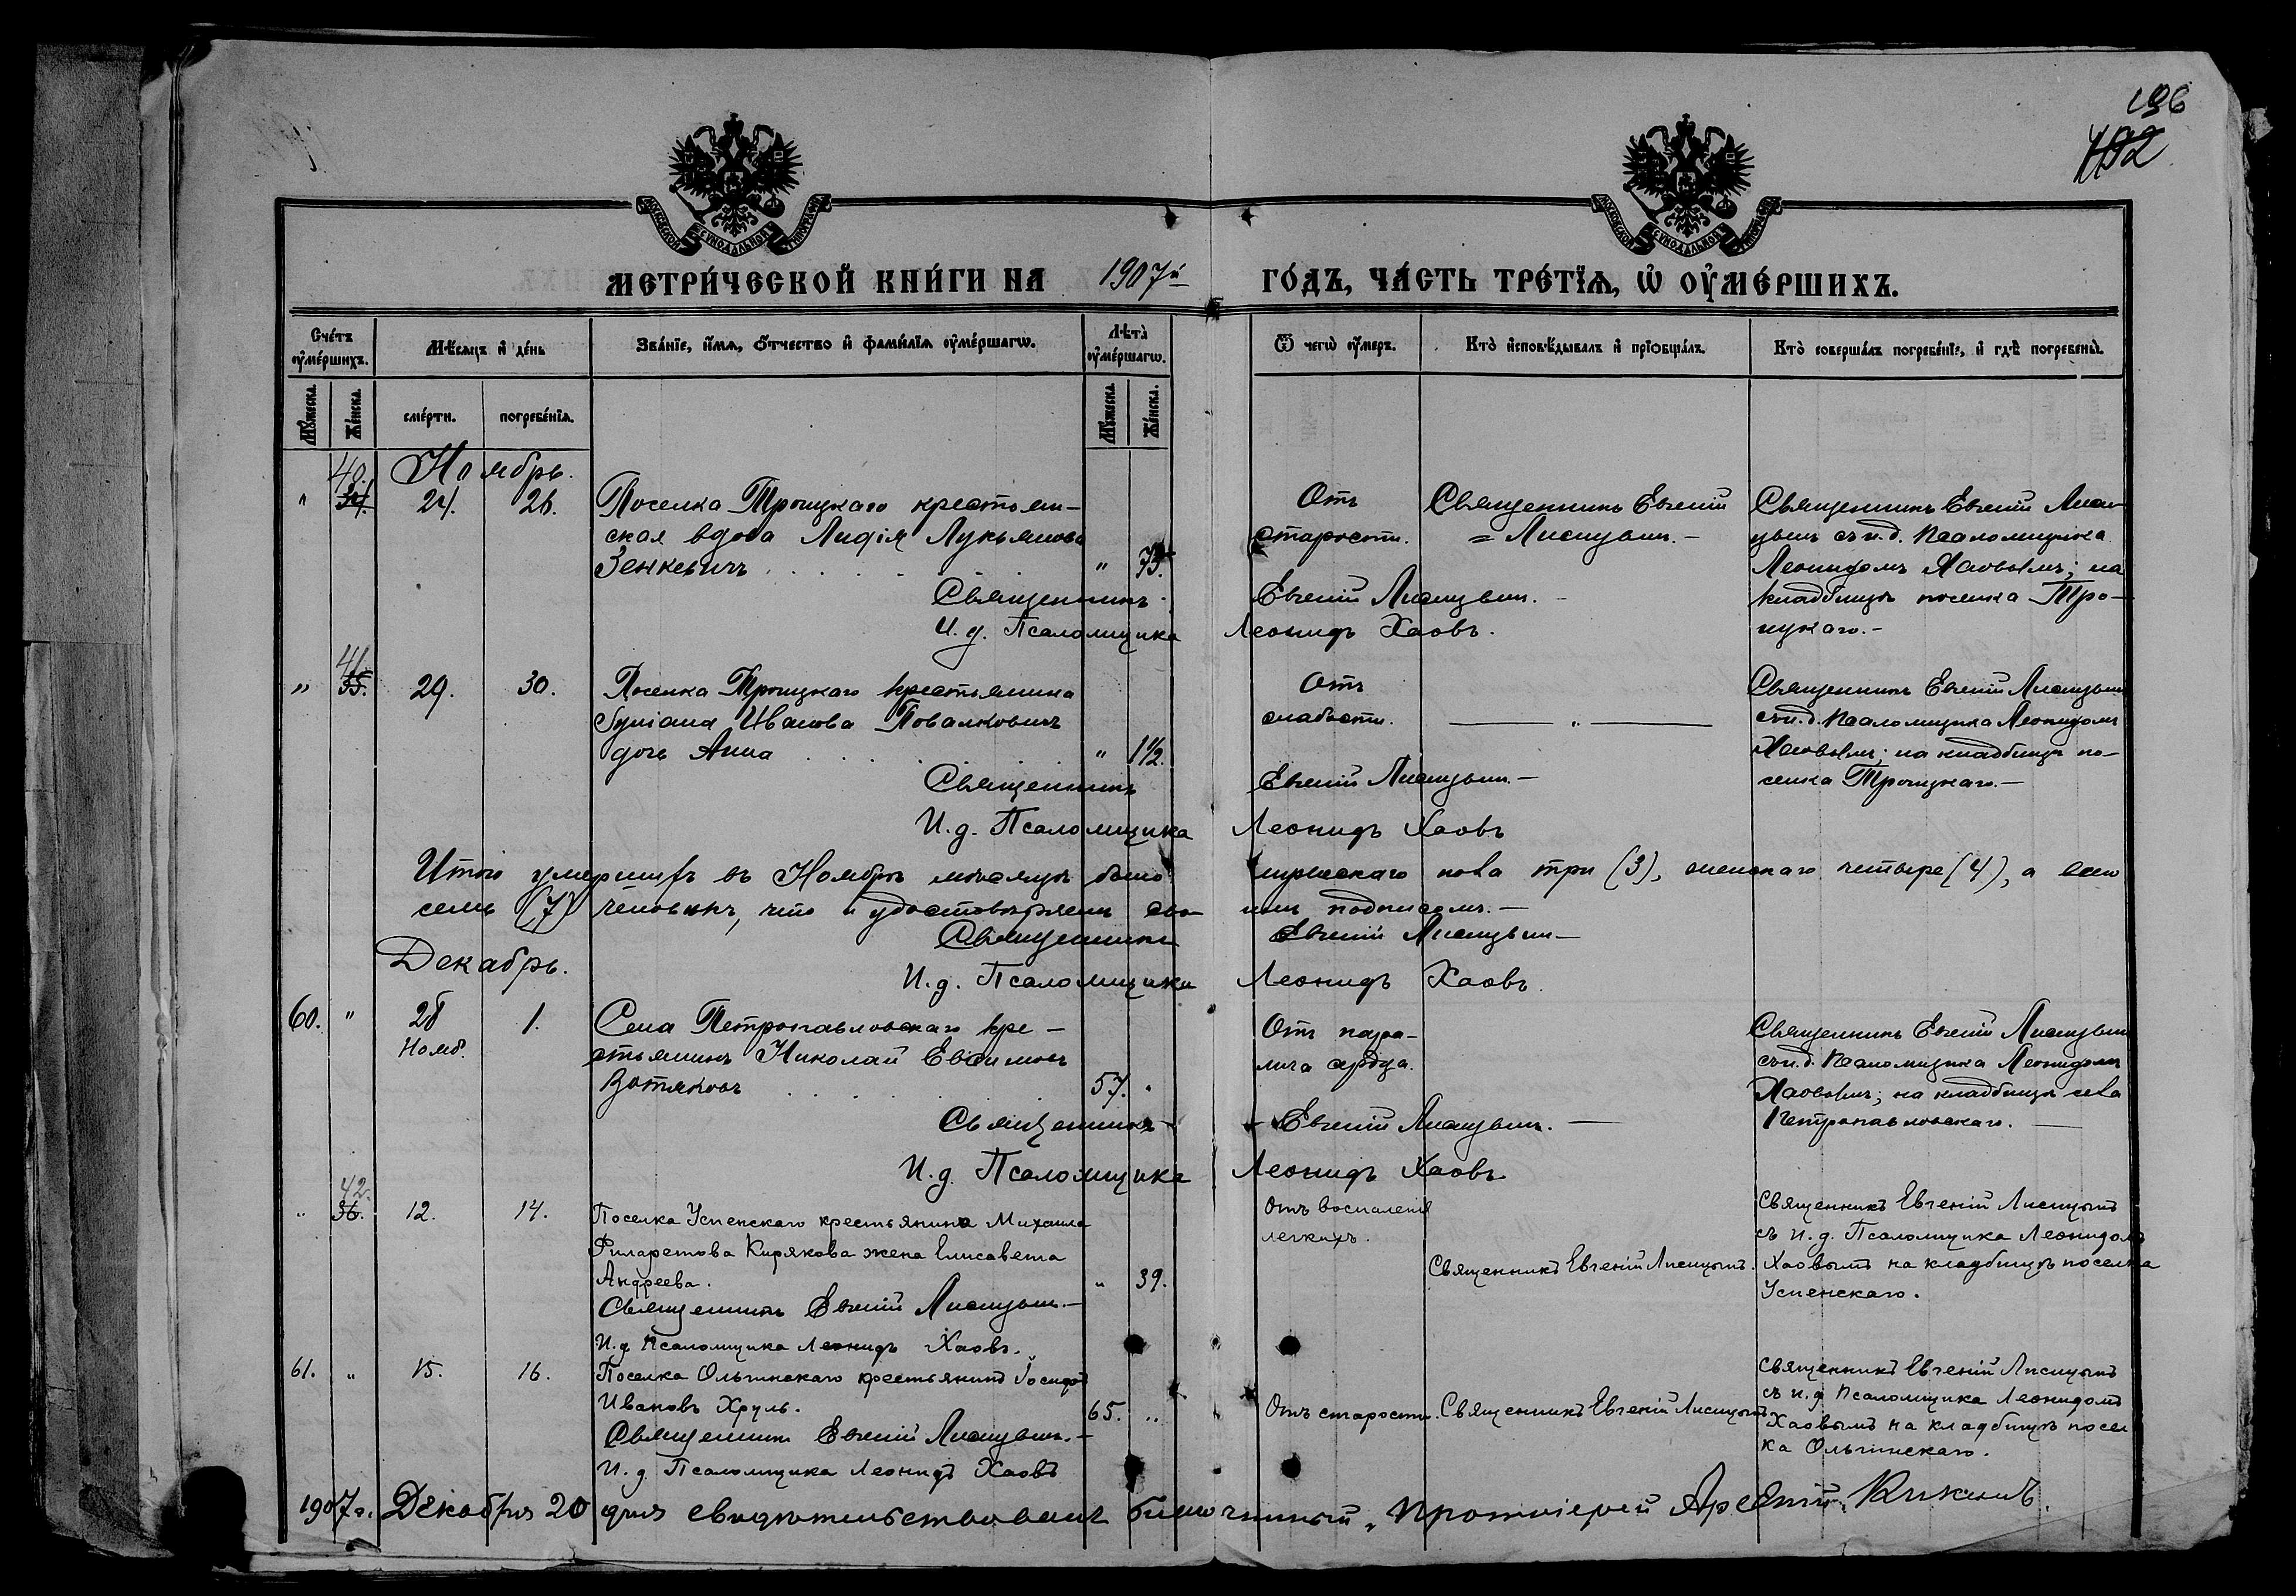 196
192
МЕТРИЧЕСКОЙ КНИГИ НА 1907й ГОДЪ, ЧАСТЬ ТРЕТІѦ, Ѡ ОУМЕРШИХЪ.
Счетъ оумершихъ.
Мѣсяцъ и день
Званіе, имѧ, отчество и фамиліѧ оумершагѡ.
Лѣта оумершагѡ.
Ѿ чегѡ оумеръ.
Кто исповѣдывалъ и пріобщалъ.
Кто совершалъ погребеніе, и гдѣ погребены.
Мужеска.
Женска.
смерти.
погребеніѧ.
Мужеска.
Женска.
Ноябрь.
40.
" 34. 24. 26.
Поселка Троицкаго крестьян-
ская вдова Лидія Лукьянова
Зенкевичъ " 75.
Отъ
старости.
Священникъ Евгеній
= Лисицынъ. -
Священникъ Евгеній Лиси-
цынъ съ и.д. Псаломщика
Леонидомъ Хаовымъ; на
кладбищѣ поселка Тро-
ицкаго. -
Священникъ Евгеній Лисицынъ. -
И. д. Псаломщика Леонидъ Хаовъ.
41.
" 35. 29. 30.
Поселка Троицкаго крестьянина
Іуліана Иванова Повалковичъ
дочь Анна " 1 1/2.
Отъ
слабости.
— " —
Священникъ Евгеній Лисицынъ
съ и.д. Псаломщика Леонидомъ
Хаовымъ; на кладбищѣ по-
селка Троицкаго. -
Священникъ Евгеній Лисицынъ. -
И. д. Псаломщика Леонидъ Хаовъ
Итого умершихъ въ Ноябрѣ мѣсяцѣ было мужескаго пола три (3), женскаго четыре (4), а всего
семь (7) человѣкъ, что и удостовѣряемъ сво- имъ подписомъ. -
Священникъ Евгеній Лисицынъ -
И. д. Псаломщика Леонидъ Хаовъ.
Декабрь.
60. " 28 1.
Нояб.
Села Петропавловскаго кре-
стьянинъ Николай Евсимовъ
Вотяковъ 57. "
Отъ пара-
лича сердца.
Священникъ Евгеній Лисицынъ
съ и.д. Псаломщика Леонидомъ
Хаовымъ; на кладбищѣ села
Петропавловскаго. —
Священникъ Евгеній Лисицынъ. —
И. д. Псаломщика Леонидъ Хаовъ
42.
" 36. 12. 14.
Поселка Успенскаго крестьянина Михаила
Филаретова Кирякова жена Елисавета
Андреева. " 39.
Отъ воспаленія
легкихъ.
Священникъ Евгеній Лисицынъ.
Священникъ Евгеній Лисицынъ
съ и. д. Псаломщика Леонидомъ
Хаовымъ на кладбищѣ поселка
Успенскаго.
Священникъ Евгеній Лисицынъ. -
И. д. Псаломщика Леонидъ Хаовъ.
61. " 15. 16.
Поселка Ольгинскаго крестьянинъ Іосифъ
Ивановъ Хруль. 65. "
Отъ старости.
Священникъ Евгеній Лисицынъ
Священникъ Евгеній Лисицынъ
съ и. д. Псаломщика Леонидомъ
Хаовымъ на кладбищѣ посел
ка Ольгинскаго.
Священникъ Евгеній Лисицынъ. -
И. д. Псаломщика Леонидъ Хаовъ
1907 г. Декабря 20 дня свидѣтельствовалъ благочинный, Протоіерей Арсеній